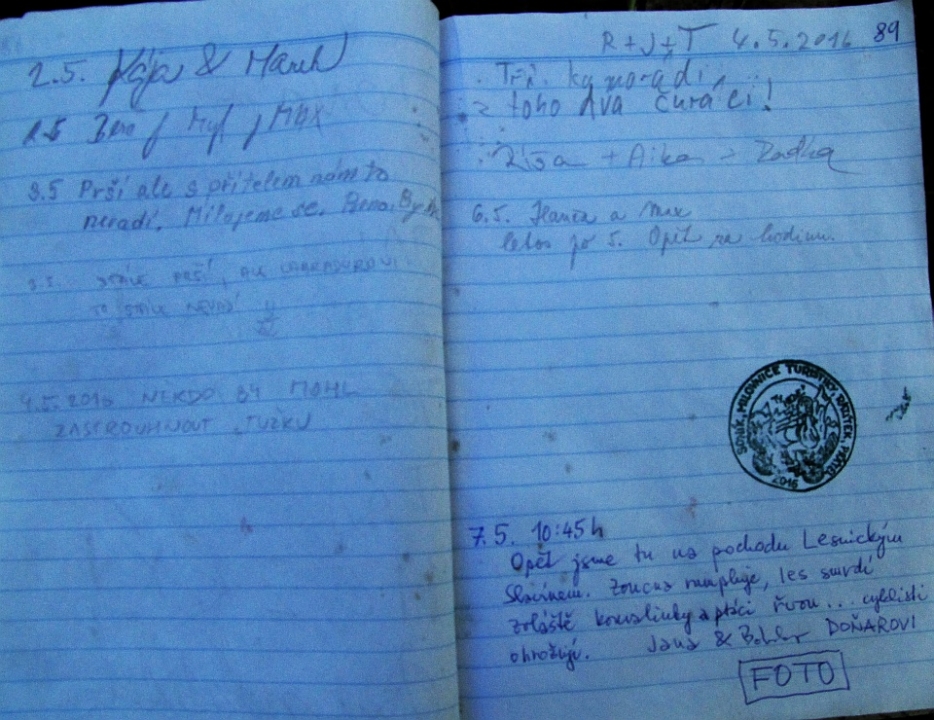 2.5. Kája & Marek
2.5 Beno
3.5 Prší ale s přítelem nám to
nevadí. Milujeme se. Beno,
3.5. STÁLE PRŠÍ, ALE
TO STÁLE NEVADÍ
4.5.2016 NĚKDO BY MOHL
ZASTROUHNOUT TUŽKU
R+J+T 4.5.2016 89
Tři kamarádi
z toho dva čuráci!
Ríša + Aika + Radka
6.5. Hanka a Max
letos po 5. Opět za hodinu.
MILOVNICE TURISTIKY,
2016
7.5. 10:45 h
Opět jsme tu na pochodu Lesnickým
, les smrdí
zvláště konvalinky a ptáci řvou... cyklisti
ohrožují. Jana & DOŇAROVI
FOTO